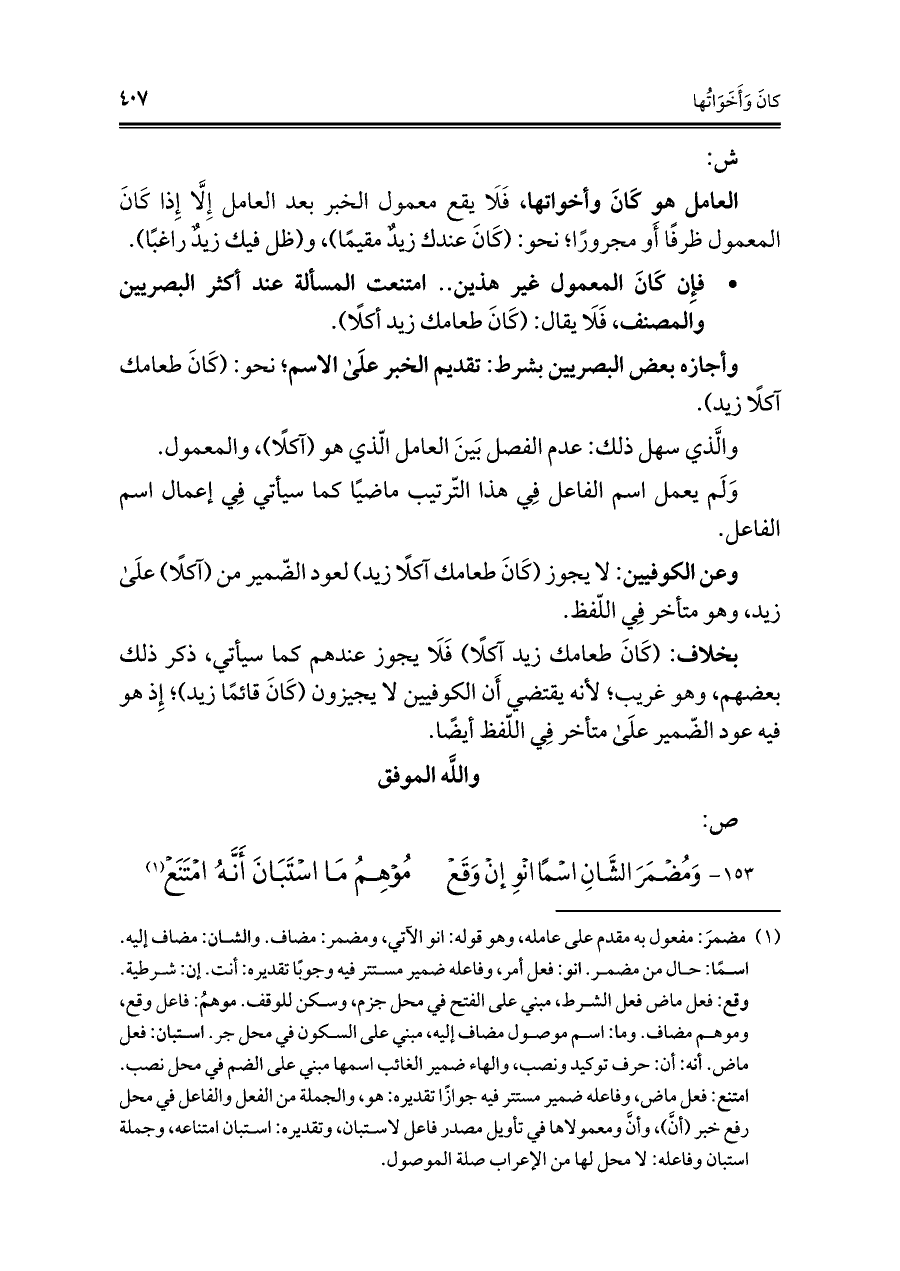 كانَ وَأَخَوَاتُها ٤٠٧
ش:
العامل هو كَانَ وأخواتها، فَلَا يقع معمول الخبر بعد العامل إِلَّا إِذا كَانَ
المعمول ظرفًا أَو مجرورًا؛ نحو: (كَانَ عندك زيدٌ مقيمًا)، و(ظل فيك زيدٌ راغبًا).
• فإِن كَانَ المعمول غير هذين.. امتنعت المسألة عند أكثر البصريين
والمصنف، فَلَا يقال: (كَانَ طعامك زيد أكلًا).
وأجازه بعض البصريين بشرط: تقديم الخبر علَىٰ الاسم؛ نحو: (كَانَ طعامك
آكلًا زيد).
والَّذي سهل ذلك: عدم الفصل بَينَ العامل الّذي هو (آكلًا)، والمعمول.
وَلَم يعمل اسم الفاعل فِي هذا التّرتيب ماضيًا كما سيأتي فِي إعمال اسم
الفاعل.
وعن الكوفيين: لا يجوز (كَانَ طعامك آكلًا زيد) لعود الضّمير من (آكلًا) علَىٰ
زيد، وهو متأخر فِي اللّفظ.
بخلاف: (كَانَ طعامك زيد آكلًا) فَلَا يجوز عندهم كما سيأتي، ذكر ذلك
بعضهم، وهو غريب؛ لأنه يقتضي أَن الكوفيين لا يجيزون (كَانَ قائمًا زيد)؛ إِذ هو
فيه عود الضّمير علَىٰ متأخر فِي اللّفظ أيضًا.
واللَّه الموفق
ص:
١٥٣- وَمُضْمَرَ الشَّانِ اسْمًا انْوِ إِنْ وَقَعْ مُوْهِمُ مَا اسْتَبَانَ أَنَّهُ امْتَنَعْ(١)
(١) مضمرَ: مفعول به مقدم على عامله، وهو قوله: انو الآتي، ومضمر: مضاف. والشان: مضاف إليه.
اسمًا: حال من مضمر. انو: فعل أمر، وفاعله ضمير مستتر فيه وجوبًا تقديره: أنت. إن: شرطية.
وقع: فعل ماض فعل الشرط، مبني على الفتح في محل جزم، وسكن للوقف. موهمُ: فاعل وقع،
وموهم مضاف. وما: اسم موصول مضاف إليه، مبني على السكون في محل جر. استبان: فعل
ماض. أنه: أن: حرف توكيد ونصب، والهاء ضمير الغائب اسمها مبني على الضم في محل نصب.
امتنع: فعل ماض، وفاعله ضمير مستتر فيه جوازًا تقديره: هو، والجملة من الفعل والفاعل في محل
رفع خبر (أنَّ)، وأنَّ ومعمولاها في تأويل مصدر فاعل لاستبان، وتقديره: استبان امتناعه، وجملة
استبان وفاعله: لا محل لها من الإعراب صلة الموصول.